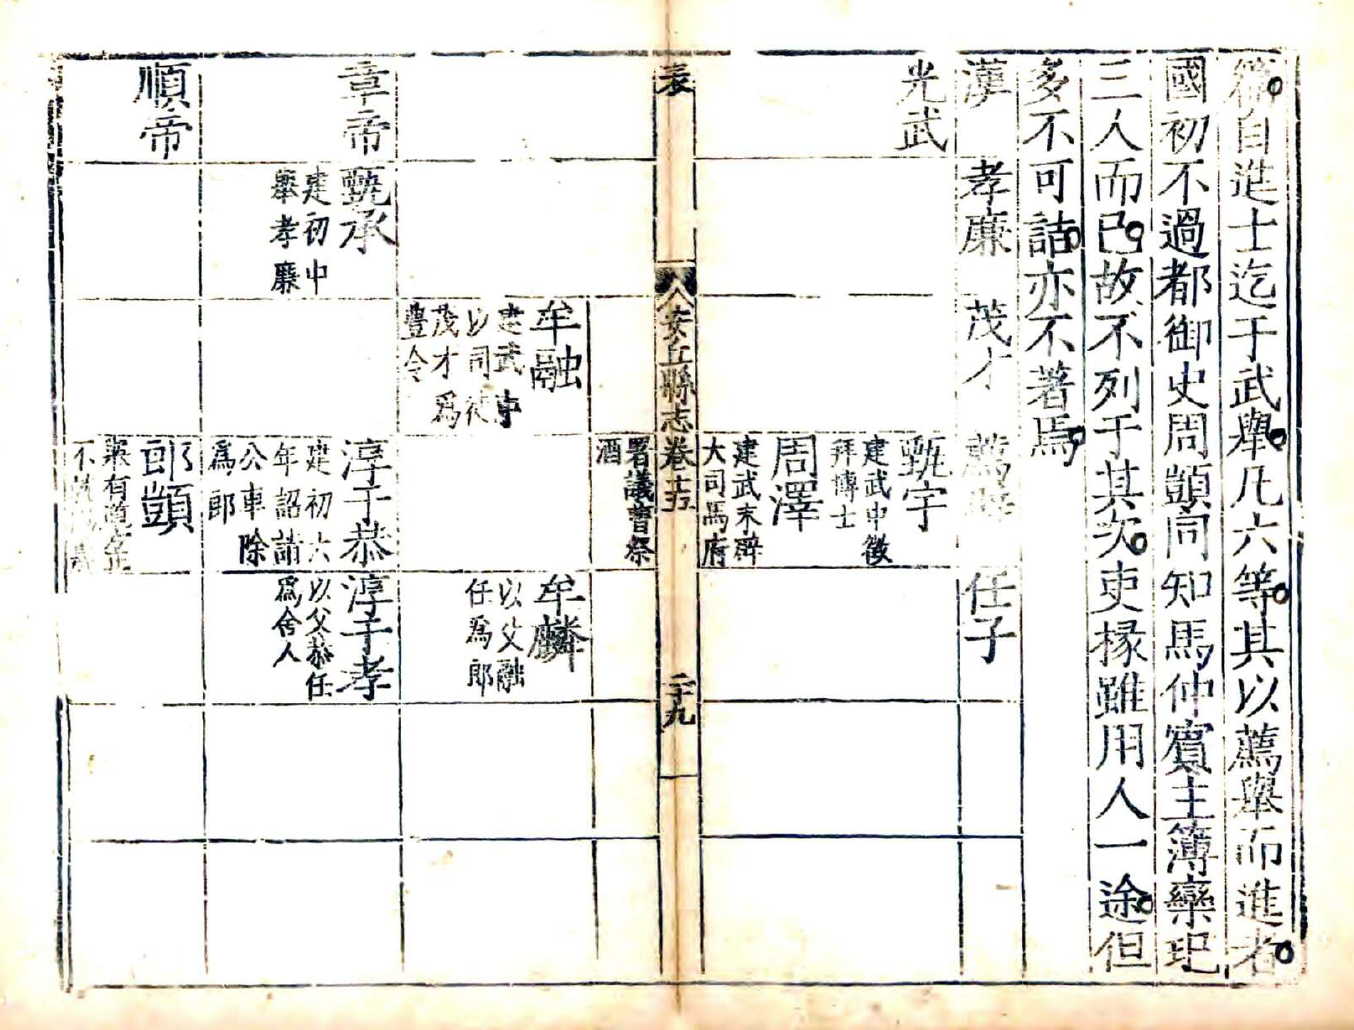 篇自進士迄于武舉凡六等其以薦舉而進者
國初不過都御史周顗同知馬仲實主簿欒玘
三人而已故不列于其次吏掾雖用人一途但
多不可詰亦不著焉
漢 孝廉 茂才 薦舉 任子
光武
甄宇
建武中徵
拜博士
周澤
建武末辟
大司馬府
表
安丘縣志卷十五
二十九
署議曹祭
酒
牟融
建武中
以司徒
茂才為
豐令
牟麟
以父融
任為郎
章帝
甄承
建初中
舉孝廉
淳于恭
建初六
年詔詣
公車除
為郎
淳于孝
以父恭任
為舍人
順帝
郎顗